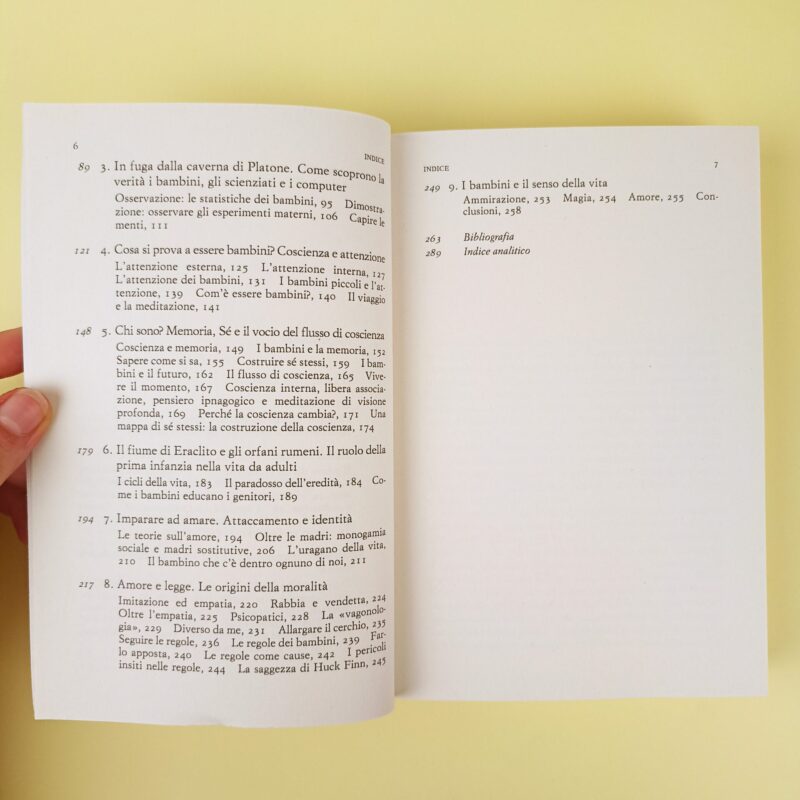 6
INDICE
89 3. In fuga dalla caverna di Platone. Come scoprono la
verità i bambini, gli scienziati e i computer
Osservazione: le statistiche dei bambini, 95 Dimostra-
zione: osservare gli esperimenti materni, 106 Capire le
menti, 111
121 4. Cosa si prova a essere bambini? Coscienza e attenzione
L'attenzione esterna, 125 L'attenzione interna, 127
L'attenzione dei bambini, 131 I bambini piccoli e l'at-
tenzione, 139 Com'è essere bambini?, 140 Il viaggio
e la meditazione, 141
148 5. Chi sono? Memoria, Sé e il vocio del flusso di coscienza
Coscienza e memoria, 149 I bambini e la memoria, 152
Sapere come si sa, 155 Costruire sé stessi, 159 I bam-
bini e il futuro, 162 Il flusso di coscienza, 165 Vive-
re il momento, 167 Coscienza interna, libera associa-
zione, pensiero ipnagogico e meditazione di visione
profonda, 169 Perché la coscienza cambia?, 171 Una
mappa di sé stessi: la costruzione della coscienza, 174
179 6. Il fiume di Eraclito e gli orfani rumeni. Il ruolo della
prima infanzia nella vita da adulti
I cicli della vita, 183 Il paradosso dell'eredità, 184 Co-
me i bambini educano i genitori, 189
194 7. Imparare ad amare. Attaccamento e identità
Le teorie sull'amore, 194 Oltre le madri: monogamia
sociale e madri sostitutive, 206 L'uragano della vita,
210 Il bambino che c'è dentro ognuno di noi, 211
217 8. Amore e legge. Le origini della moralità
Imitazione ed empatia, 220 Rabbia e vendetta, 224
Oltre l'empatia, 225 Psicopatici, 228 La «vagonolo-
gia», 229 Diverso da me, 231 Allargare il cerchio, 235
Seguire le regole, 236 Le regole dei bambini, 239 Far-
lo apposta, 240 Le regole come cause, 242 I pericoli
insiti nelle regole, 244 La saggezza di Huck Finn, 245
INDICE 7
249 9. I bambini e il senso della vita
Ammirazione, 253 Magia, 254 Amore, 255 Con-
clusioni, 258
263 Bibliografia
289 Indice analitico